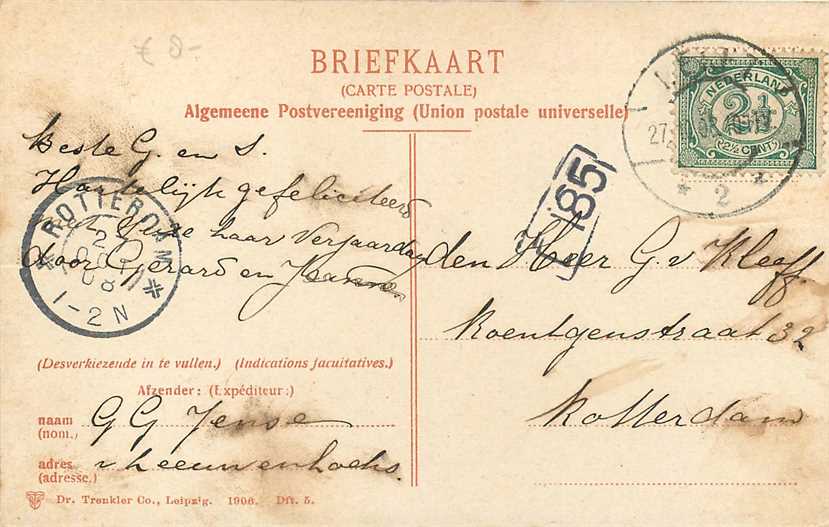 € 8-
BRIEFKAART
(CARTE POSTALE)
Algemeene Postvereeniging (Union postale universelle)
NEDERLAND
2½
(2½ CENT)
27
* 2 *
185
Beste G. en S.
Hartelijk gefeliciteerd
met haar verjaardag
door Gerard en Jeanne
ROTTERDAM
1-2N
den Heer G. v Kleeff
Roentgenstraat 32
Rotterdam
(Desverkiezende in te vullen.) (Indications facultatives.)
Afzender: (Expéditeur:)
naam G G Jense
(nom.)
adres v Leeuwenhoeks.
(adresse.)
Dr. Trenkler Co., Leipzig. 1906. Dft. 5.